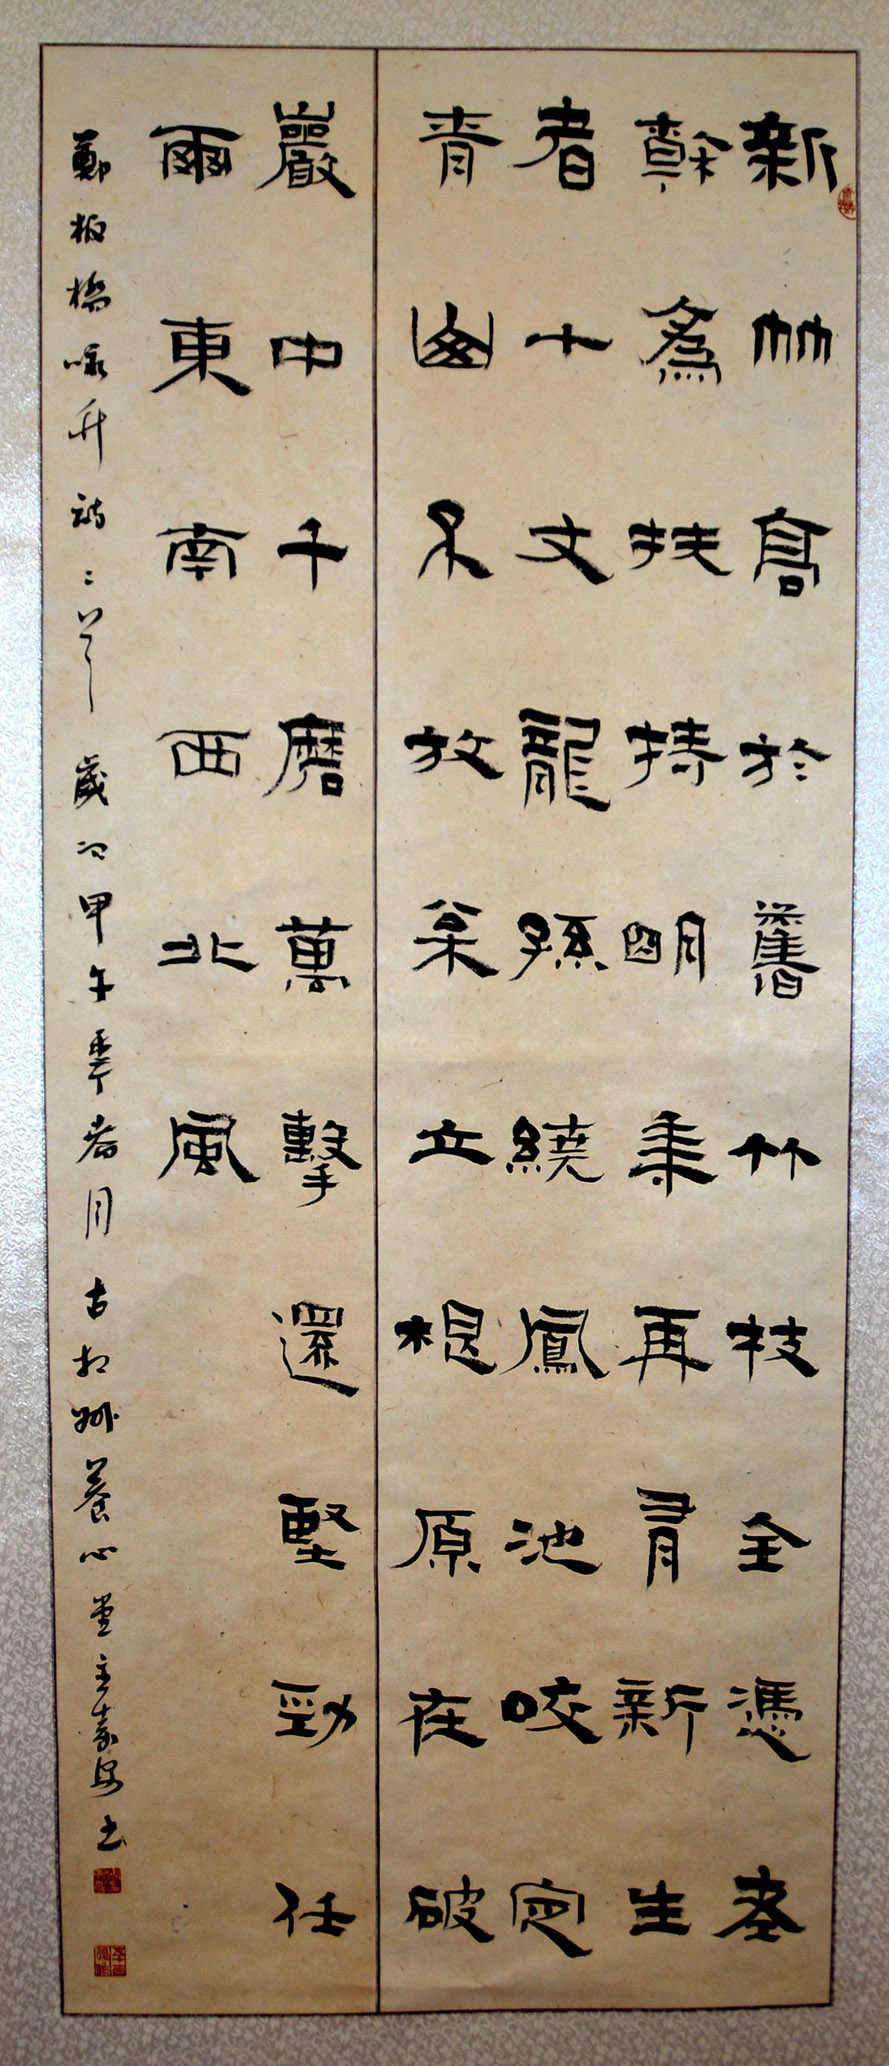 新竹高於舊竹枝全憑老
榦為扶持明年再有新生
者十丈龍孫繞鳳池咬定
青山不放枀立根原在破
巖中千磨萬擊還堅勁任
爾東南西北風
鄭板橋咏竹詩二首 歲次甲午季春月 古相州養心堂主書